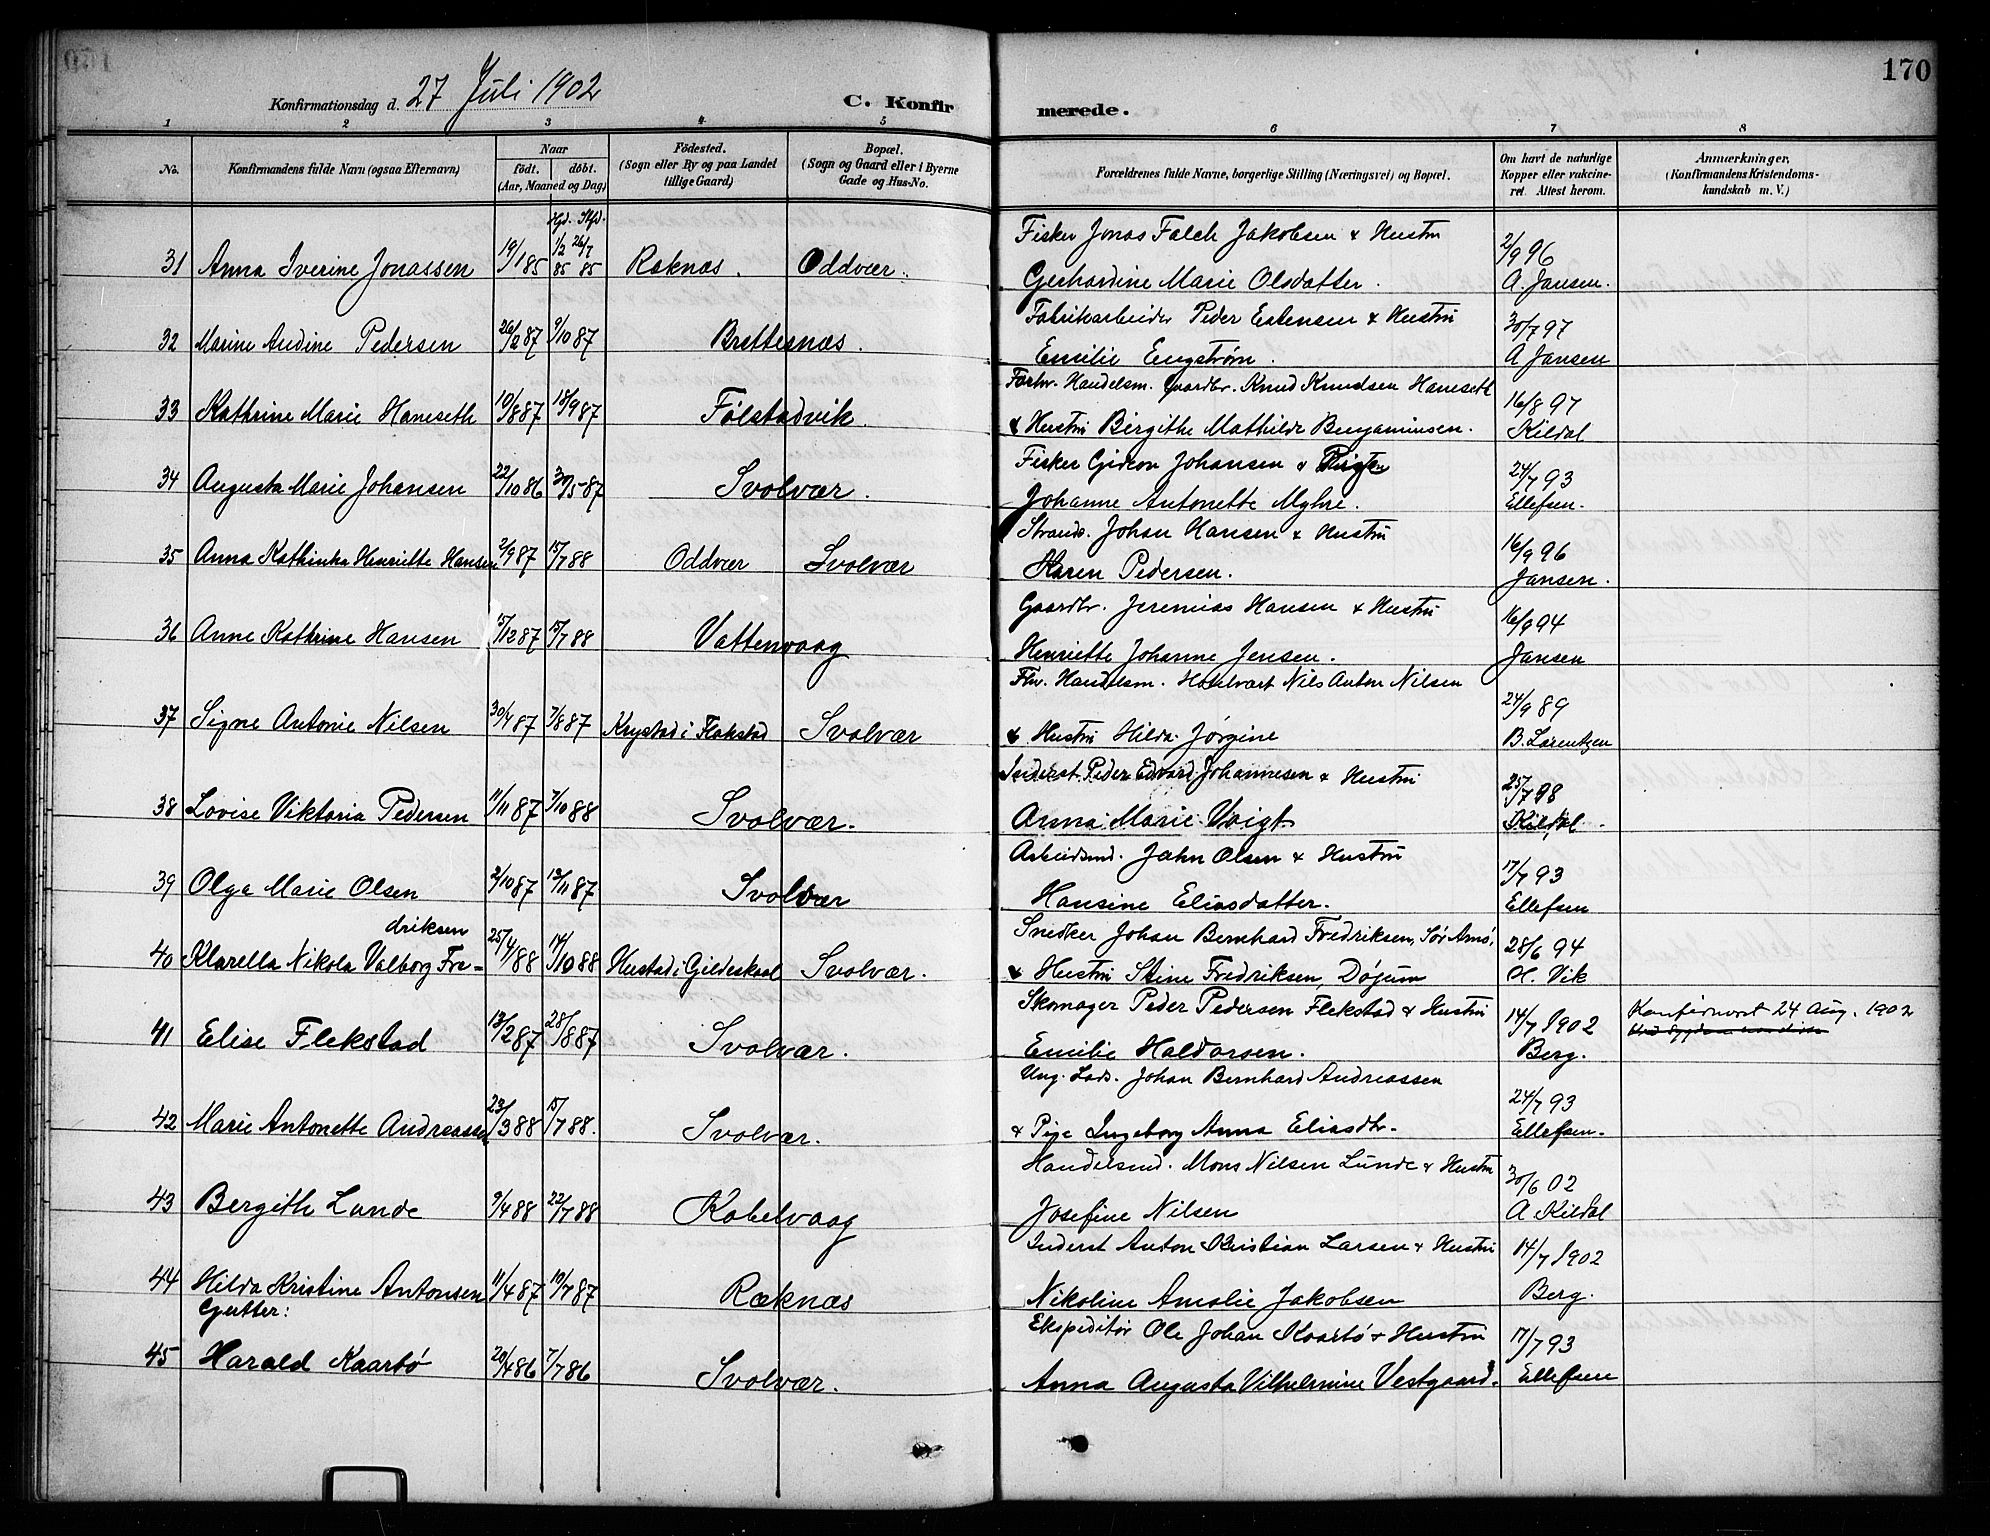 170
Konfirmationsdag d. 27 Juli 1902
C. Konfirmerede.
1 2 3 4 5 6 7 8
No.
Konfirmandens fulde Navn (ogsaa Efternavn)
Naar
födt. döbt.
(Aar, Maaned og Dag)
Födested.
(Sogn eller By og paa Landet
tillige Gaard)
Bopæl.
(Sogn og Gaard eller i Byerne
Gade og Hus-No.
Forældrenes fulde Navne, borgerlige Stilling (Næringsvei) og Bopæl.
Om havt de naturlige
Kopper eller vakcine-
ret. Attest herom.
Anmærkninger,
(Konfirmandens Kristendoms-
kundskab m. V.)
31 Anna Iverine Jonassen 19/1 85 Hjd. 1/2 85 Stfd. 26/7 85 Raknæs. Oddvær. Fisker Jonas Falch Jakobsen & Hustru 2/9 96
Gerhardine Marie Olsdatter. A. Jansen.
32 Marine Andine Pedersen 26/2 87 9/10 87 Brettesnæs. Fabrikarbeider Peder Estensen & Hustru 30/7 97
Emilie Engstrøm. A Jansen
33 Kathrine Marie Haneseth 10/8 87 18/9 87 Følstadvik. Forhv. Handelsm. Gaardbr. Knud Knudsen Haneseth 16/8 97
& Hustru Birgithe Mathilde Benjaminsen. Kildal
34 Augusta Marie Johansen 22/10 86 30/5 87 Svolvær. Fisker Gideon Johansen & 24/7 93
Johanne Antonette Myhre. Ellefsen.
35 Anna Kathinka Henriette Hansen 2/9 87 15/7 88 Oddvær Svolvær Strands. Johan Hansen & Hustru 16/9 96
Karen Pedersen. Jansen.
36 Anne Kathrine Hansen 15/12 87 15/7 88 Vattenvaag Gaardbr. Jeremias Hansen & Hustru 16/9 94
Henriette Johanne Jensen. Jansen
37 Signe Antonie Nilsen 30/4 87 7/8 87 Krystad i Flakstad Svolvær Fhv. Handelsm. Hotelvært Nils Anton Nilsen 24/9 89
& Hustru Hilda Jørgine B. Lorentzen
38 Lovise Viktoria Pedersen 11/11 87 7/10 88 Svolvær. Inderst Peder Edvard Johannesen & Hustru 25/7 98
Anna Marie Voigt. Kildal.
39 Olga Marie Olsen 2/10 87 13/11 87 Svolvær Arbeidsmd. Jahn Olsen & Hustru 17/7 93
Hansine Eliasdatter. Ellefsen
driksen
40 Klarella Nikola Valborg Fre- 25/4 88 14/10 88 Hustad i Gildeskaal Svolvær. Snedker Johan Bernhard Fredriksen, Sør Arnø, 28/6 94
& Hustru Stine Fredriksen, Døgum H. Vik
41 Elise Flekstad 13/2 87 28/8 87 Svolvær. Skomager Peder Pedersen Flekstad & Hustru 14/7 1902 Konfirmeret 24 Aug. 1902
Emilie Haldorsen. Berg.
42 Marie Antonette Andreassen 23/3 88 15/7 88. Svolvær. Ung. Lods. Johan Bernhard Andreassen 24/7 93
& Pige Ingeborg Anna Eliasdtr. Ellefsen.
43 Bergith Lunde 9/4 88 22/7 88 Kabelvaag Handelsmd. Mons Nilsen Lunde & Hustru 30/6 02
Josefine Nilsen A Kildal
44 Hilda Kristine Antonsen 11/4 87 10/7 87 Ræknæs Inderst Anton Kristian Larsen & Hustru 14/7 1902
Nikoline Amalie Jakobsen Berg.
Gutter:
45 Harald Kaarbø 20/4 86 7/7 86 Svolvær. Ekspeditør Ole Johan Kaarbø & Hustru 17/7 93
Anna Augusta Vilhelmine Vestgaard. Ellefsen